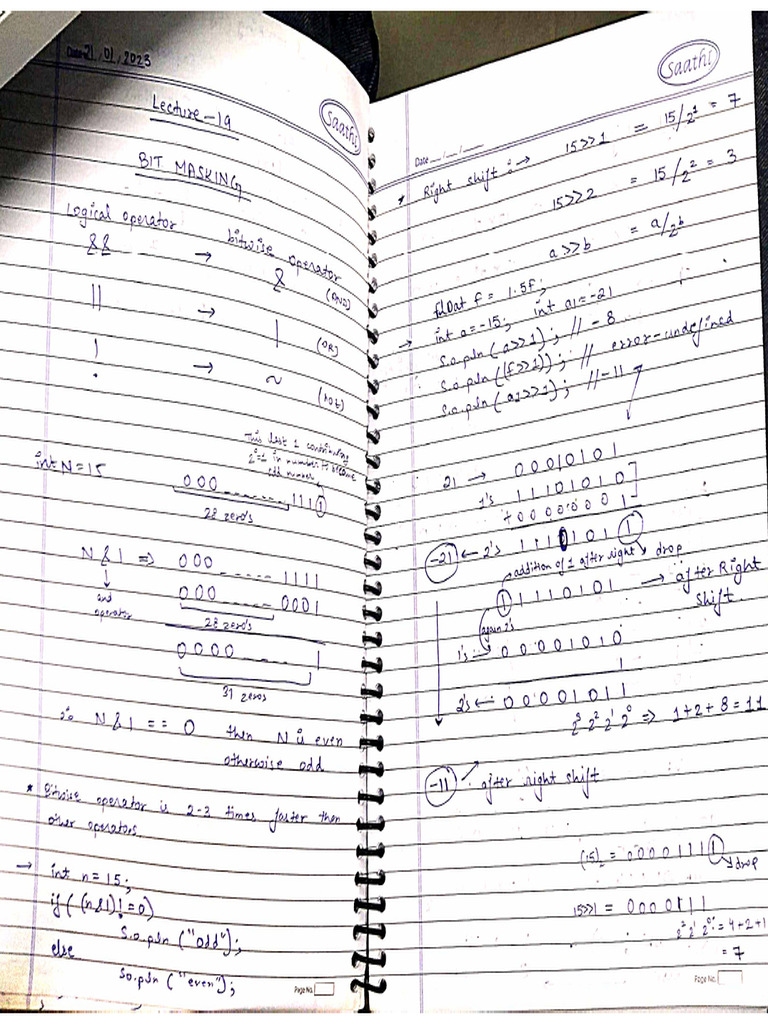 Date 21, 01, 2023
Saathi
Lecture-19
BIT MASKING
Logical operator → bitwise operator
&& → & (AND)
|| → | (OR)
! → ~ (not)
This last 1 contributing
2^0=1 in number to become
odd number
int N=15
000 ------ 1111
28 zero's
N&1 => 000 ----- 1111
and operator
000 ----- 0001
28 zero's
0000 ---- 1
31 zeros
∴ N&1 == 0 then N is even
otherwise odd
* Bitwise operator is 2-3 times faster then
other operators
→ int n=15;
if((n&1)!=0)
S.o.pln("odd");
else
So.pln("even");
Page No.
Saathi
Date __/__/__
* Right shift :→ 15>>1 = 15/2^1 = 7
15>>2 = 15/2^2 = 3
a>>b = a/2^b
float f = 1.5f;
→ int a=-15; int a1=-21
S.o.pln(a>>1); // -8
S.o.pln((f>>1)); // error-undefined
S.o.pln(a1>>1); //-11
21 → 00010101
1's 11101010
+00000001
-21 ← 2's 11101011
addition of 1 after right drop
11110101 → after Right
shift.
again 2's
1's → 00001010
1
2's ← 00001011
2^3 2^2 2^1 2^0 => 1+2+8=11
-11 after right shift
(15)2 = 00001111 → drop
15>>1 = 0000111
2^2 2^1 2^0 = 4+2+1
= 7
Page No.